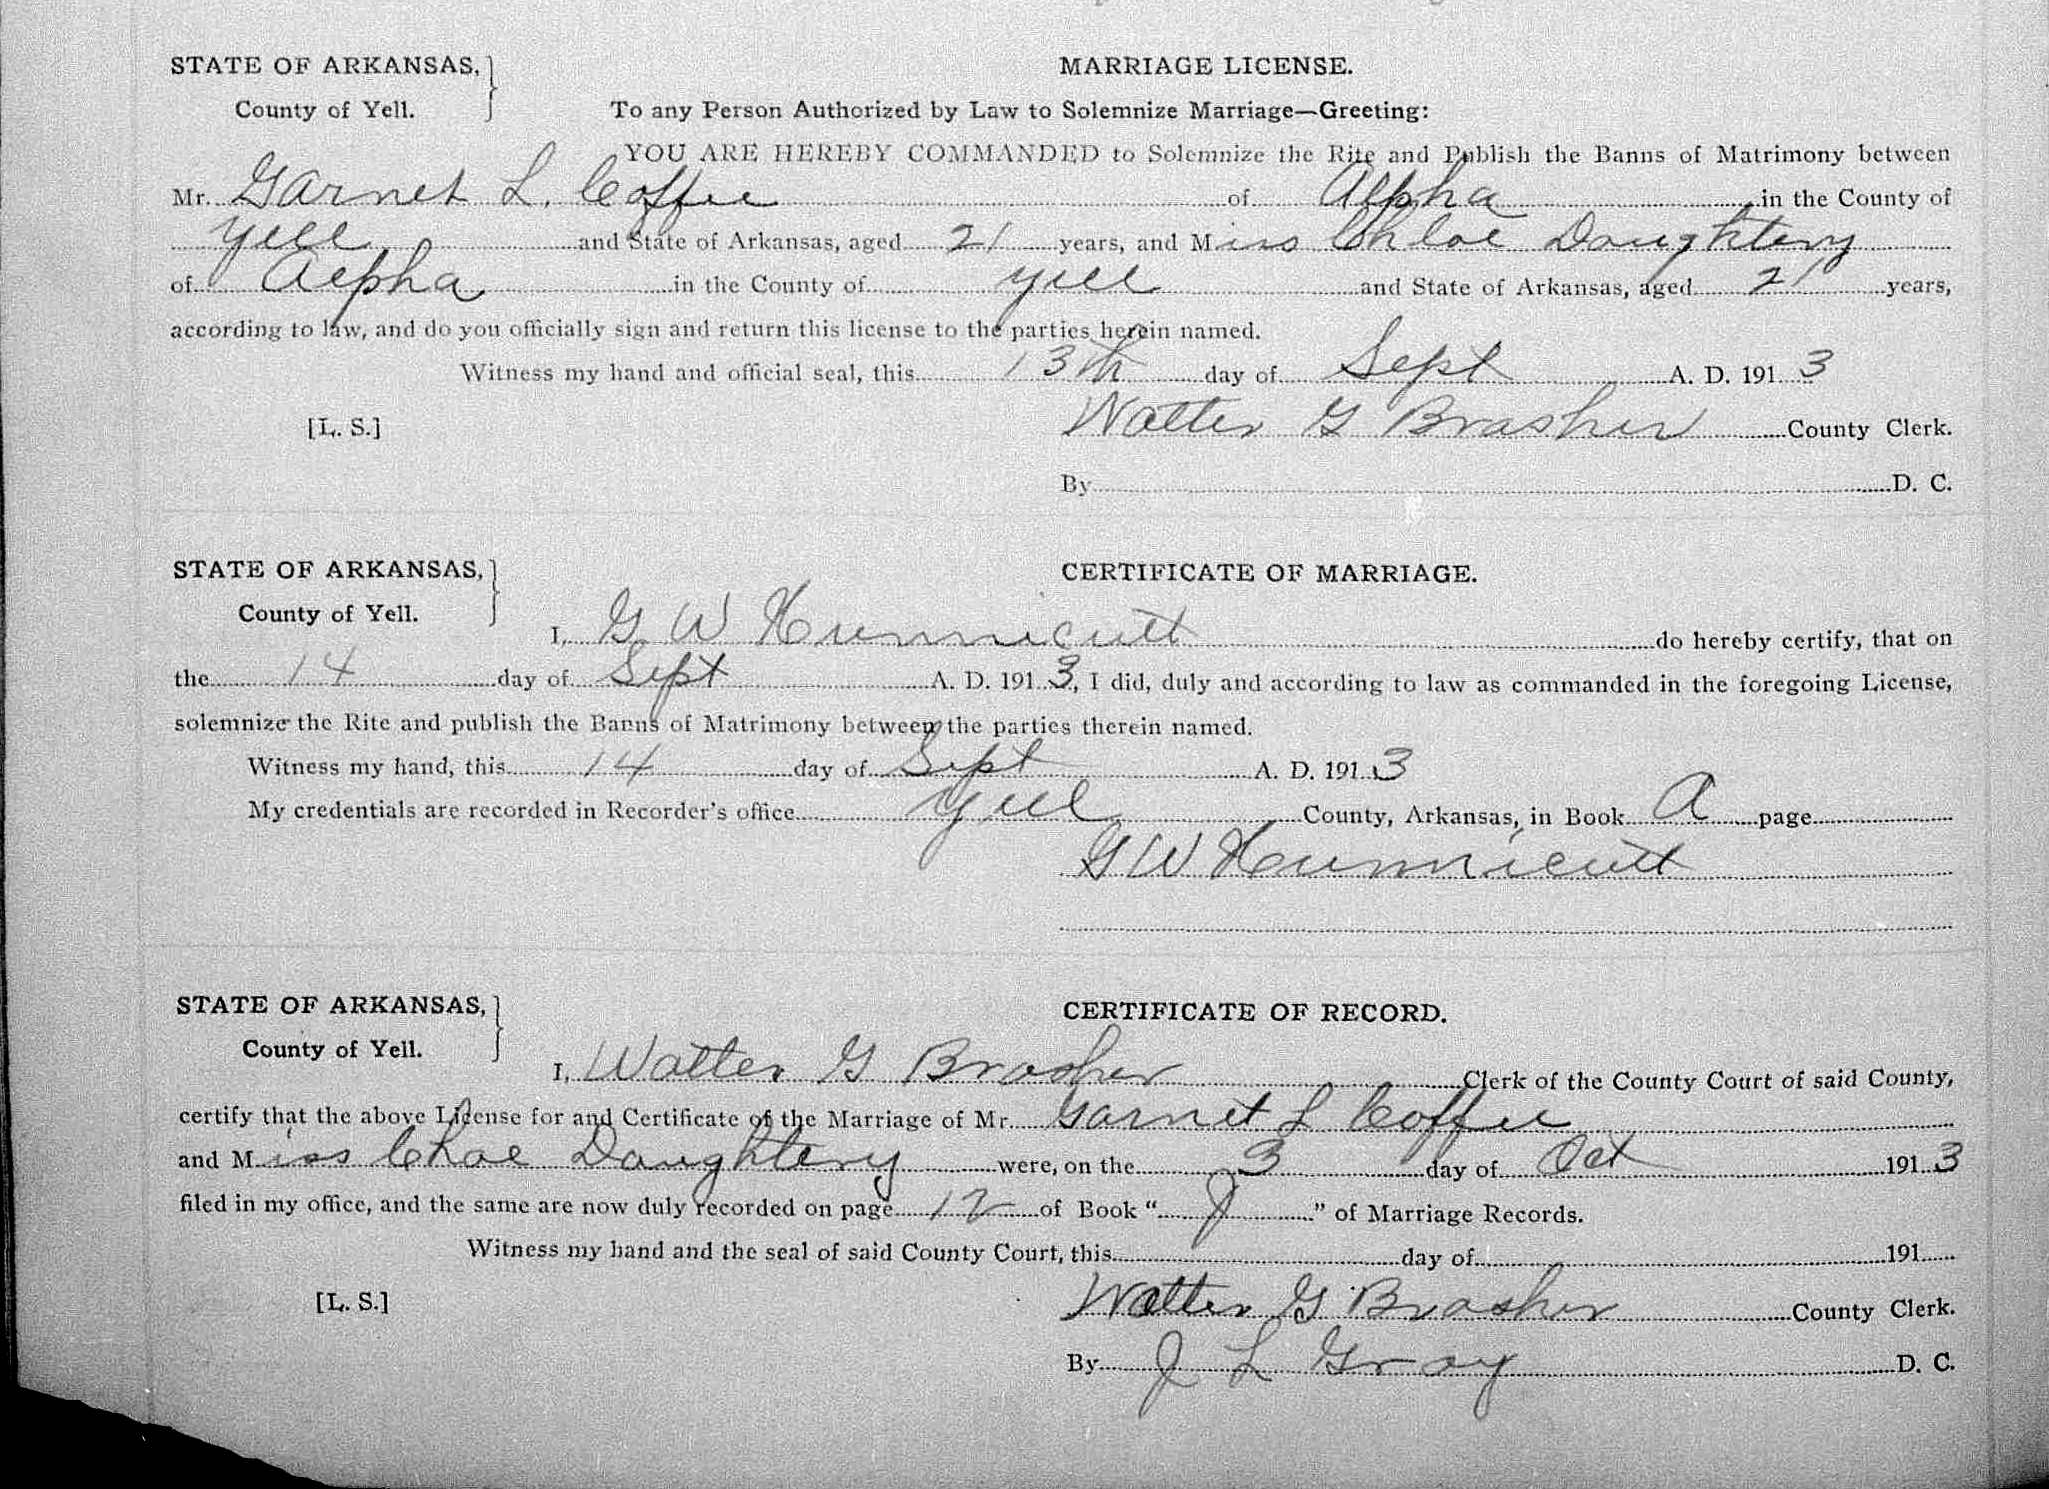 STATE OF ARKANSAS, MARRIAGE LICENSE.
County of Yell. To any Person Authorized by Law to Solemnize Marriage—Greeting:
YOU ARE HEREBY COMMANDED to Solemnize the Rite and Publish the Banns of Matrimony between
Mr. Garnet L. Coffee of Alpha in the County of
Yell and State of Arkansas, aged 21 years, and Miss Chloe Daughtery
of Alpha in the County of Yell and State of Arkansas, aged 21 years,
according to law, and do you officially sign and return this license to the parties herein named.
Witness my hand and official seal, this 13th day of Sept A. D. 1913
[L. S.] Walter G Brasher County Clerk.
By D. C.
STATE OF ARKANSAS, CERTIFICATE OF MARRIAGE.
County of Yell.
I, G. W Hunnicutt do hereby certify, that on
the 14 day of Sept A. D. 1913, I did, duly and according to law as commanded in the foregoing License,
solemnize the Rite and publish the Banns of Matrimony between the parties therein named.
Witness my hand, this 14 day of Sept A. D. 1913
My credentials are recorded in Recorder's office Yell County, Arkansas, in Book A page
G W Hunnicutt
STATE OF ARKANSAS, CERTIFICATE OF RECORD.
County of Yell.
I, Walter G Brasher Clerk of the County Court of said County,
certify that the above License for and Certificate of the Marriage of Mr. Garnet L Coffee
and Miss Chloe Daughtery were, on the 3 day of Oct 1913
filed in my office, and the same are now duly recorded on page 12 of Book “J” of Marriage Records.
Witness my hand and the seal of said County Court, this day of 191
[L. S.] Walter G Brasher County Clerk.
By J L Gray D. C.